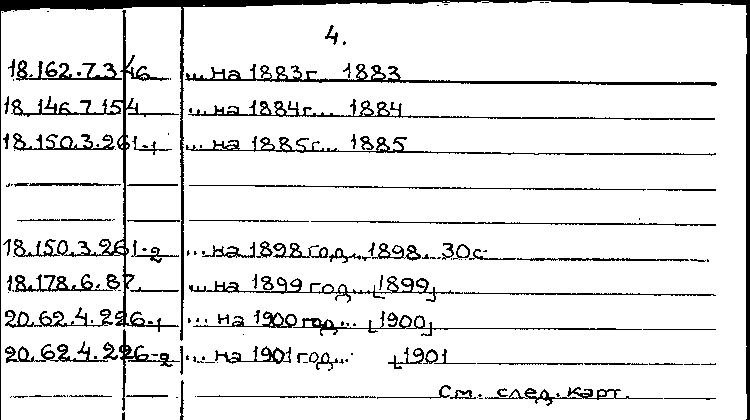 4.
18.162.7.346 ... на 1883г. 1883
18.146.7.154 ... на 1884г... 1884
18.150.3.261-1 ... на 1885г... 1885
18.150.3.261-2 ... на 1898 год... 1898. 30с
18.178.6.87. ... на 1899 год... [1899]
20.62.4.226-1 ... на 1900 год... [1900]
20.62.4.226-2 ... на 1901 год... [1901
См. след. карт.